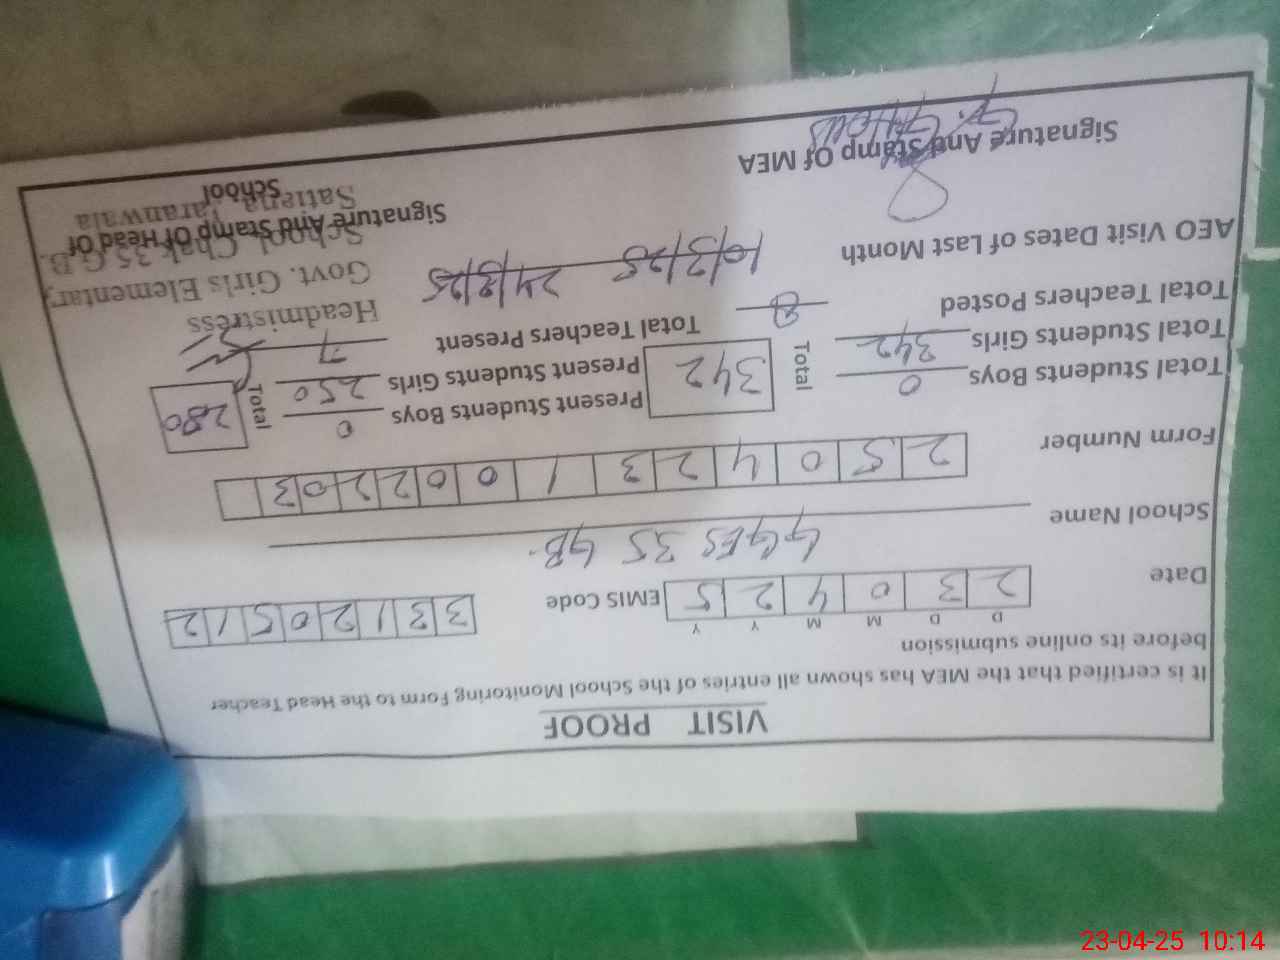 VISIT PROOF
It is certified that the MEA has shown all entries of the School Monitoring Form to the Head Teacher
before its online submission
D D M M Y Y
Date 2 3 0 4 2 5 EMIS Code 3 3 1 2 0 5 1 2
School Name GGES 35 GB.
Form Number 2 5 0 4 2 3 1 0 0 2 2 0 3
Total Students Boys 0 Total 342 Present Students Boys 0 Total 280
Total Students Girls 342 Present Students Girls 250
Total Teachers Posted 8 Total Teachers Present 7
AEO Visit Dates of Last Month 10/3/25 24/3/25
Headmistress
Govt. Girls Elementary
School, Chak 35 G.B.
Satiena, Jaranwala
Signature And Stamp Of MEA
Signature And Stamp Of Head Of
School
23-04-25 10:14